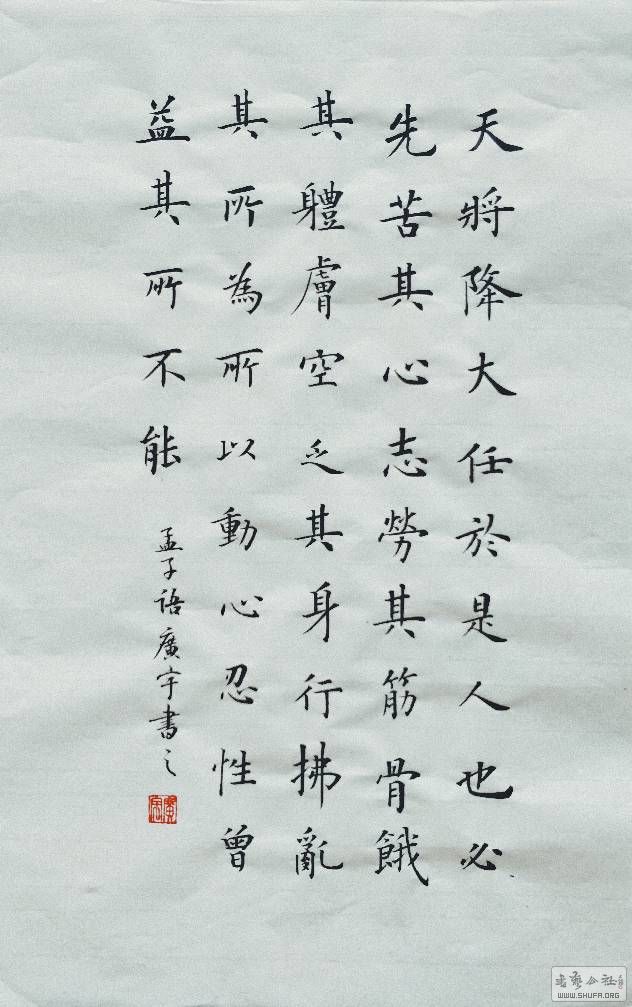 天將降大任於是人也必
先苦其心志勞其筋骨餓
其軆膚空乏其身行拂亂
其所為所以動心忍性曾
益其所不能
孟子語廣宇書之
書藝公社
WWW.SHUFA.ORG